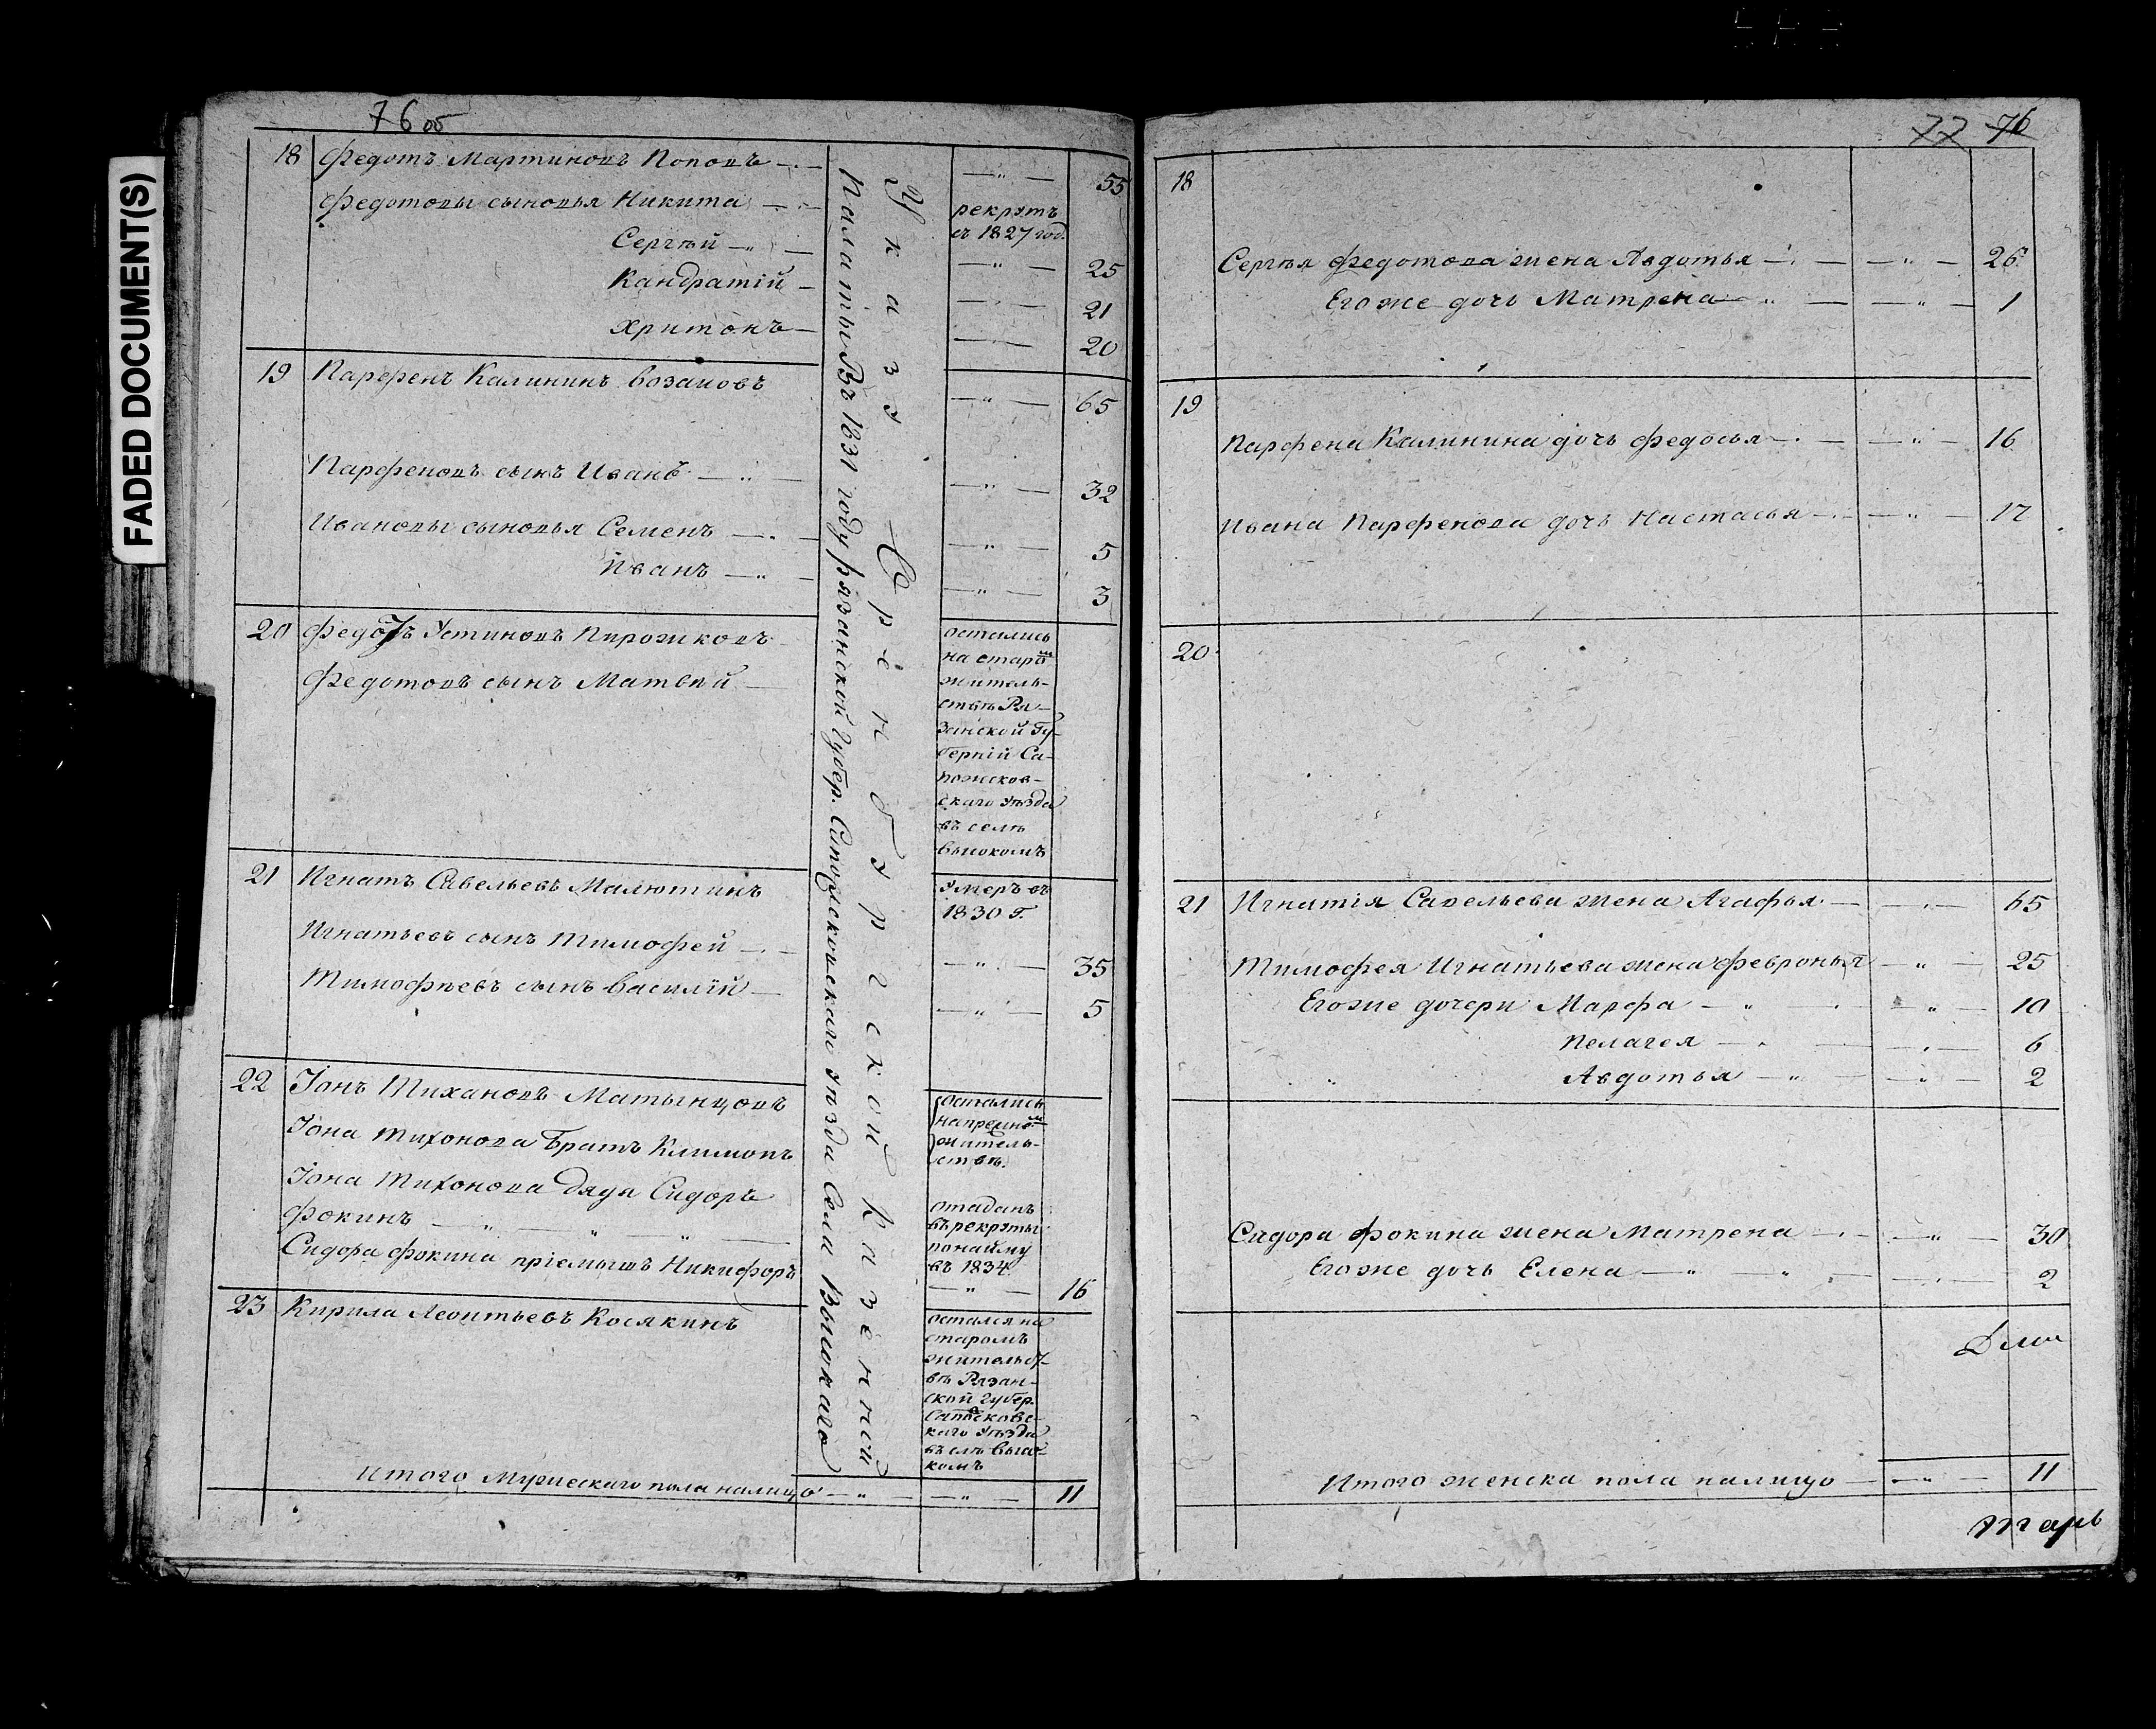 FADED DOCUMENT(S)
76 об
18 Федотъ Мартиновъ Поповъ 55
Федотовы сыновья Никита рекрутъ съ 1827 год.
Сергѣй 25
Кандратій 21
Хритонъ 20
19 Парфенъ Калининъ 65
Парфеновъ сынъ Иванъ 32
Ивановы сыновья Семенъ 5
Иванъ 3
20 Федотъ Устиновъ Пирожковъ
Федотовъ сынъ Матвей
остались
на старом
житель-
ствѣ Ря-
занской Гу-
берній Са-
пожсков-
скаго уѣзда
въ селѣ
высокомъ
21 Игнатъ Савельевъ Малютинъ
умеръ въ
1830 г.
Игнатьевъ сынъ Тимофей 35
Тимофѣевъ сынъ Василій 5
22 Іонъ Тихановъ Матынцовъ
Іона Тихонова братъ Климонъ
остались
на прежнем
житель-
ствѣ.
Іона Тихонова дядя Сидоръ
Фокинъ
отаданъ
въ рекруты
по найму
въ 1834
Сидора Фокина пріемышъ Никифоръ 16
23 Кирила Леонтьевъ Косякинъ
остался на
старомъ
жительст-
вѣ Рязан-
ской губер.
Сапожсковс-
каго уѣзда
въ селѣ высо-
комъ
Итого Мужескаго пола налицо 11
Указъ Оренбургской Казенной
Палаты Въ 1831 году рязанской губер. Сапожсковскаго уѣзда Села Высокаго
77 76
18
Сергѣя Федотова жена Авдотья 26
Егоже дочь Матрена 1
19
Парфена Калинина дочь Федосья 16
Ивана Парфенова дочь Настасья 12
20
21 Игнатія Савельева жена Агафья 65
Тимофея Игнатьева жена Февронья 25
Егоже дочери Марфа 10
Пелагея 6
Авдотья 2
Сидора Фокина жена Матрена 30
Егоже дочь Елена 2
Итого женска пола налицо 11